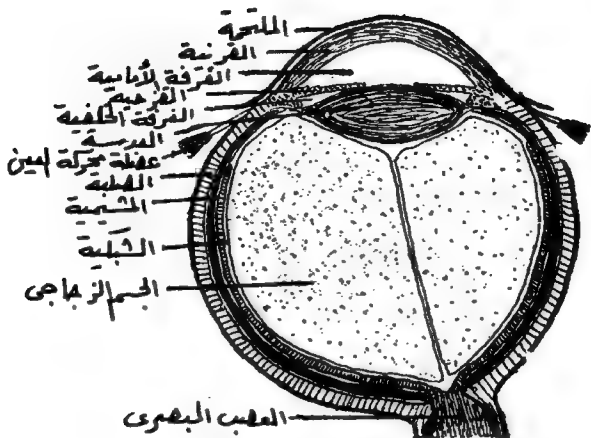 الملتحمة
القرنية
الغرفة الأمامية
القزحية
الغرفة الخلفية
العدسة
عضلة محركة للعين
الصلبة
المشيمية
الشبكية
الجسم الزجاجى
العصب البصرى